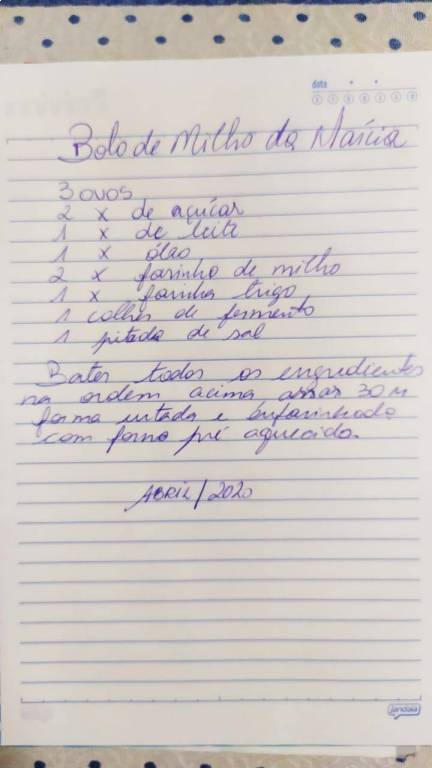 data
Bolo de Milho da Márcia
3 ovos
2 x de açúcar
1 x de leite
1 x óleo
2 x farinha de milho
1 x farinha trigo
1 colher de fermento
1 pitada de sal
Bater todos os engredientes
na ordem acima, assar 30 m
forma untada e enfarinhada
com forno pré aquecido.
ABRIL/2020
jandaia